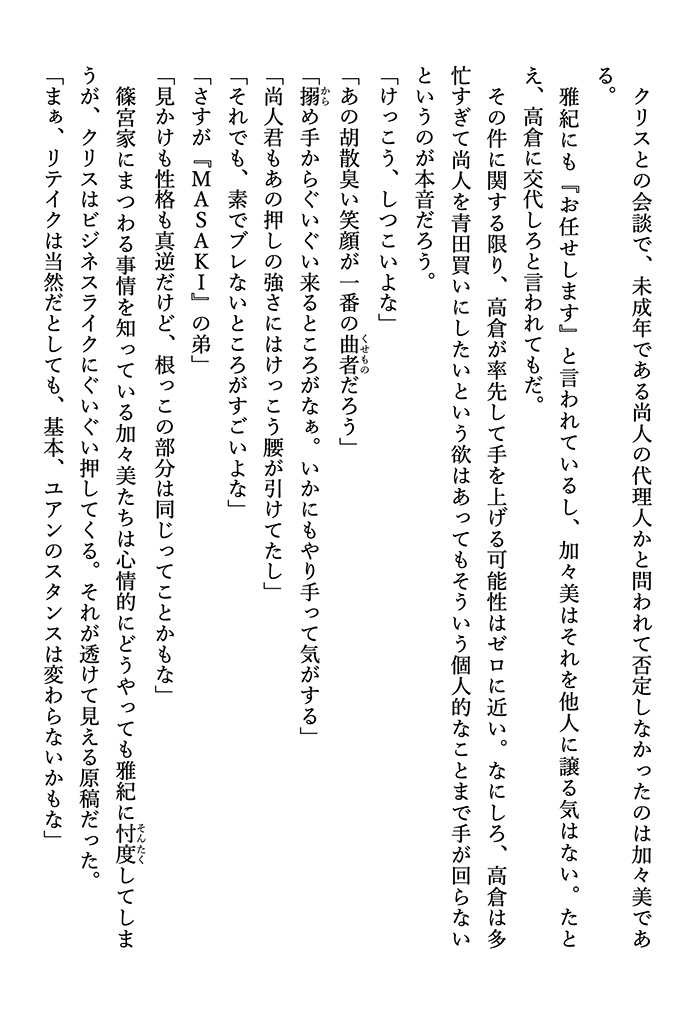 クリスとの会談で、未成年である尚人の代理人かと問われて否定しなかったのは加々美であ
る。
雅紀にも『お任せします』と言われているし、加々美はそれを他人に譲る気はない。たと
え、高倉に交代しろと言われてもだ。
その件に関する限り、高倉が率先して手を上げる可能性はゼロに近い。なにしろ、高倉は多
忙すぎて尚人を青田買いにしたいという欲はあってもそういう個人的なことまで手が回らない
というのが本音だろう。
「けっこう、しつこいよな」
「あの胡散臭い笑顔が一番の曲者だろう」
「搦め手からぐいぐい来るところがなぁ。いかにもやり手って気がする」
「尚人君もあの押しの強さにはけっこう腰が引けてたし」
「それでも、素でブレないところがすごいよな」
「さすが『ＭＡＳＡＫＩ』の弟」
「見かけも性格も真逆だけど、根っこの部分は同じってことかもな」
篠宮家にまつわる事情を知っている加々美たちは心情的にどうやっても雅紀に忖度してしま
うが、クリスはビジネスライクにぐいぐい押してくる。それが透けて見える原稿だった。
「まぁ、リテイクは当然だとしても、基本、ユアンのスタンスは変わらないかもな」